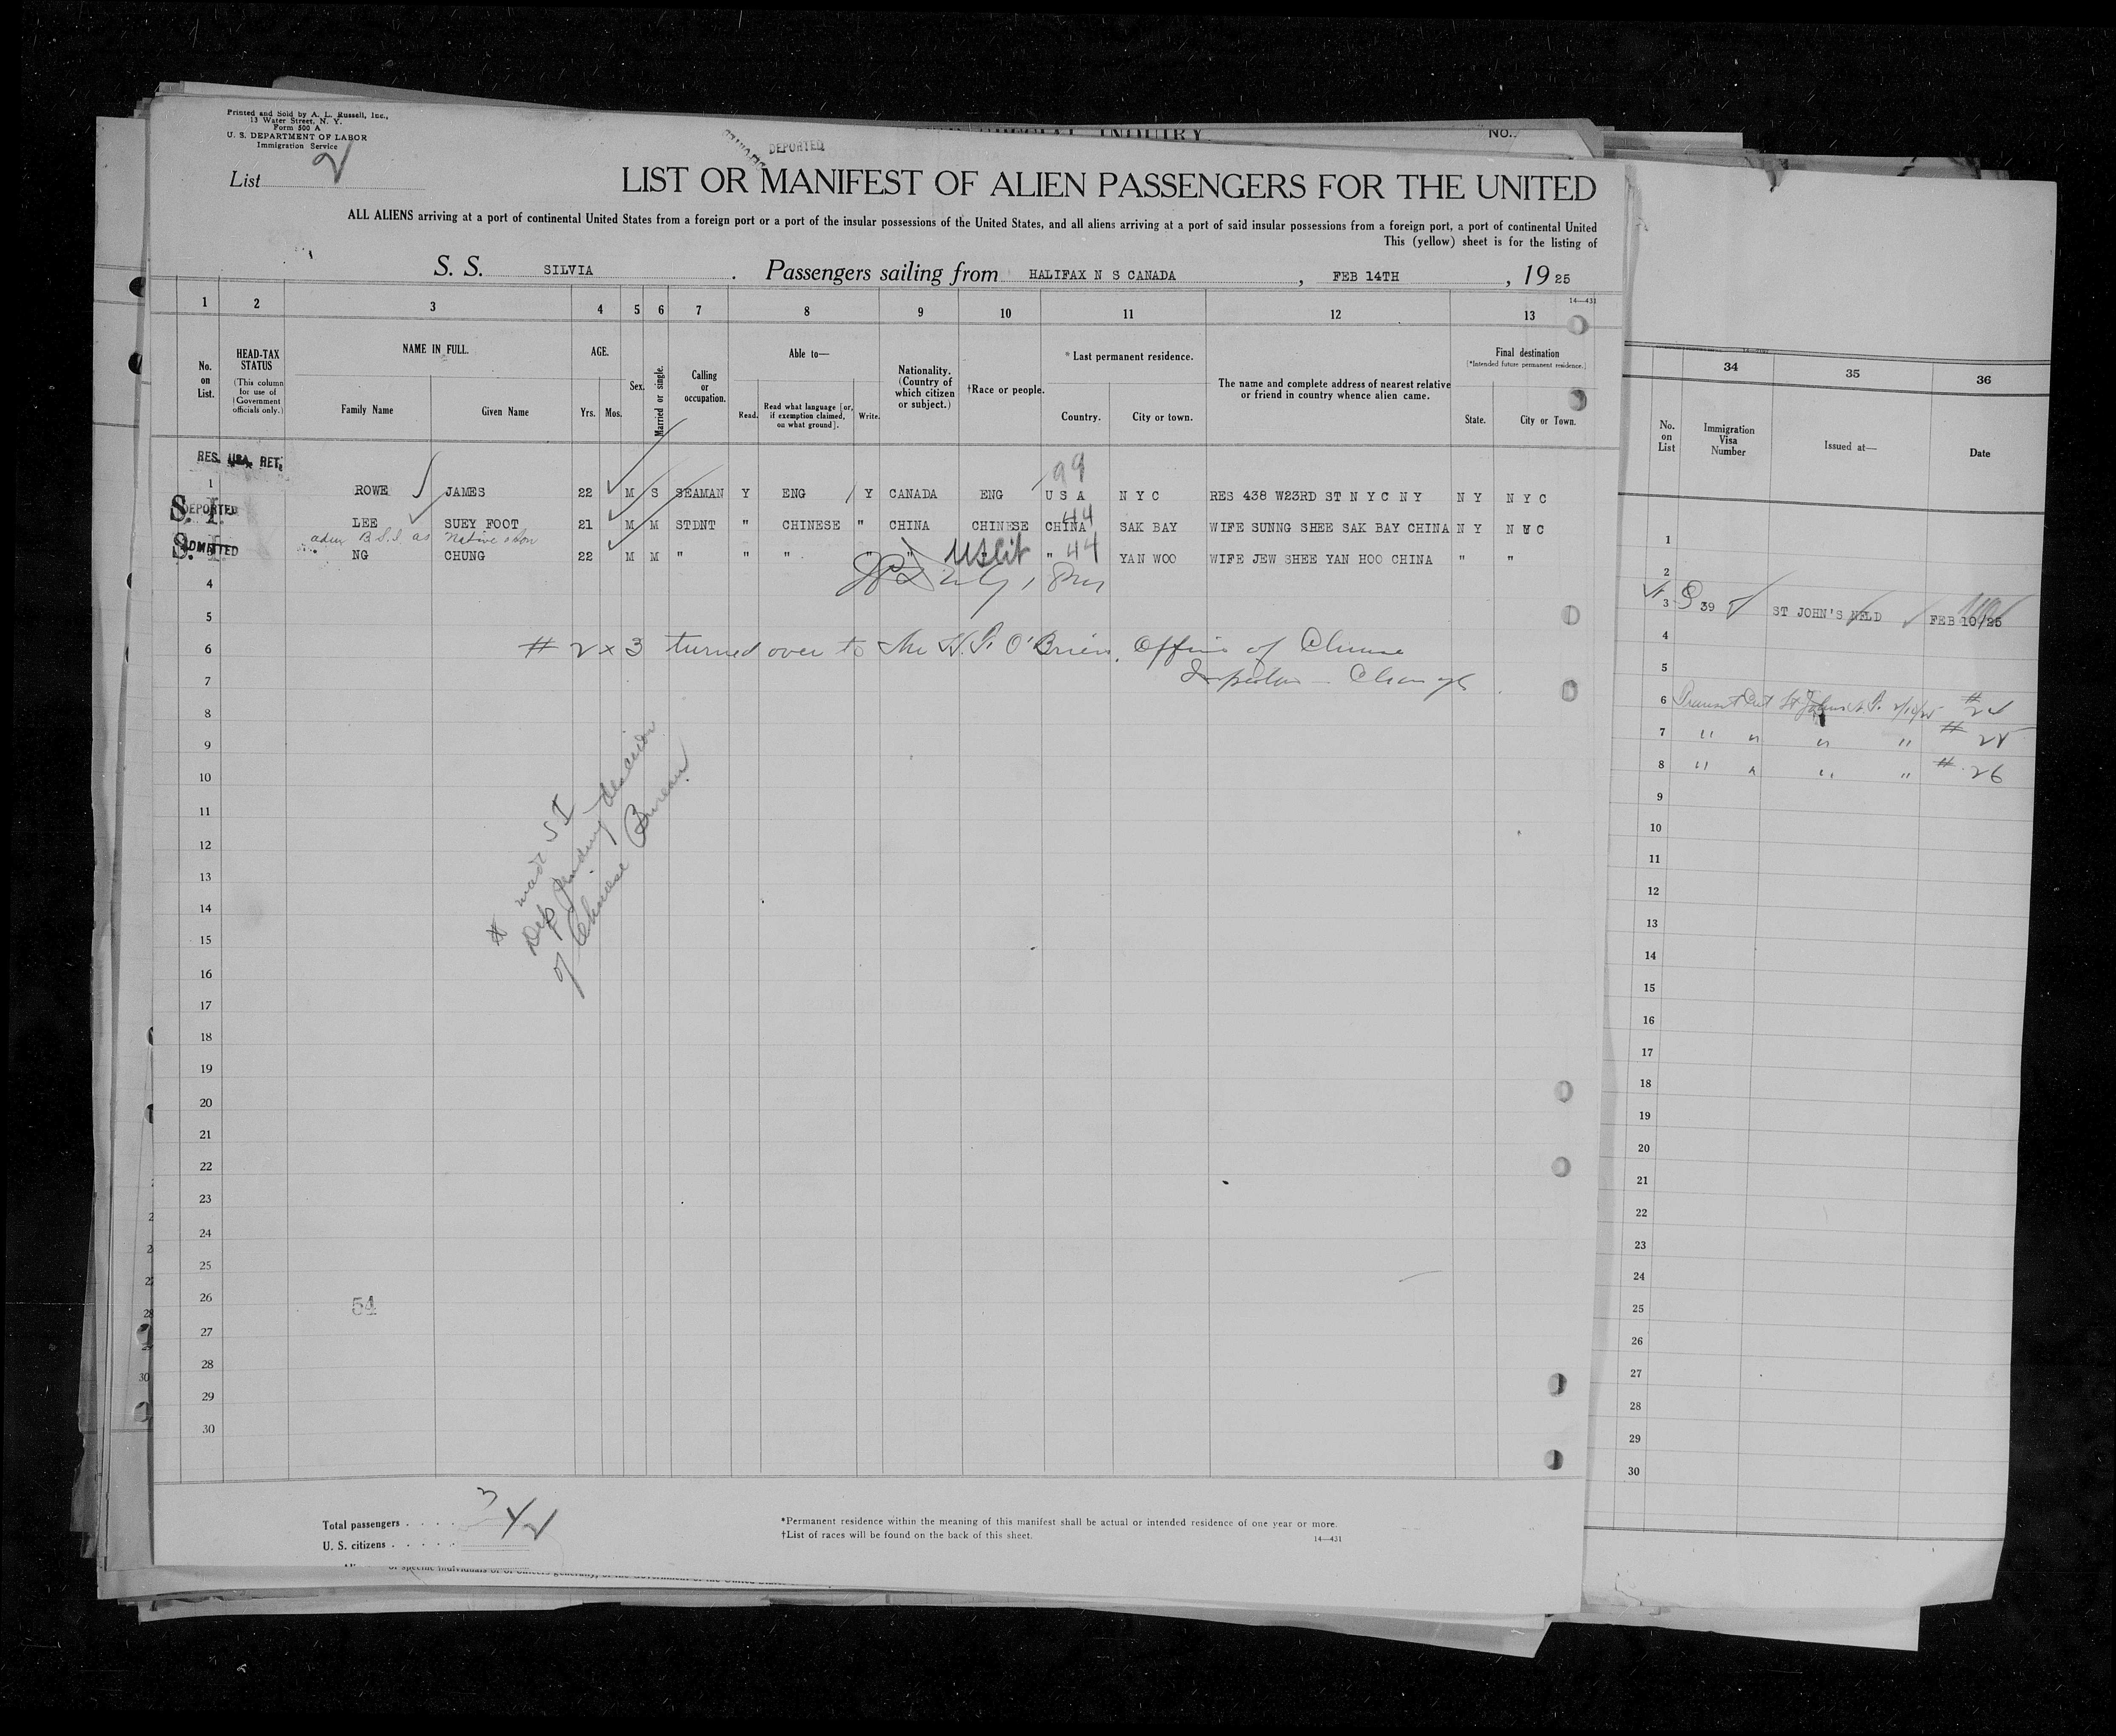 Printed and Sold by A. L. Russell, Inc.,
13 Water Street, N. Y.
Form 500 A
U. S. DEPARTMENT OF LABOR
Immigration Service
DEPORTED
INQUIRY
No.
List 2
LIST OR MANIFEST OF ALIEN PASSENGERS FOR THE UNITED
ALL ALIENS arriving at a port of continental United States from a foreign port or a port of the insular possessions of the United States, and all aliens arriving at a port of said insular possessions from a foreign port, a port of continental United
This (yellow) sheet is for the listing of
S. S. SILVIA . Passengers sailing from HALIFAX N S CANADA , FEB 14TH , 19 25
14—431
1 2 3 4 5 6 7 8 9 10 11 12 13
No. on List.
HEAD-TAX STATUS
(This column for use of Government officials only.)
NAME IN FULL.
Family Name Given Name
AGE.
Yrs. Mos.
Sex.
Married or single.
Calling or occupation.
Able to—
Read. Read what language [or, if exemption claimed, on what ground]. Write.
Nationality. (Country of which citizen or subject.)
†Race or people.
* Last permanent residence.
Country. City or town.
The name and complete address of nearest relative or friend in country whence alien came.
Final destination
(*Intended future permanent residence.)
State. City or Town.
RES. USA. RET.
99
1 ROWE JAMES 22 M S SEAMAN Y ENG Y CANADA ENG U S A N Y C RES 438 W23RD ST N Y C NY N Y N Y C
S. I. DEPORTED
LEE SUEY FOOT 21 M M STDNT " CHINESE " CHINA CHINESE CHINA 44 SAK BAY WIFE SUNNG SHEE SAK BAY CHINA N Y N Y C
adm B.S.I. as Native
S. I. ADMITTED
NG CHUNG 22 M M " " " " " US Cit " 44 YAN WOO WIFE JEW SHEE YAN HOO CHINA " "
4
5
6 # 2 x 3 turned over to Mr H. P. O'Brien, Office of Chinese
7 Inspector in Charge
8
9
10
11
12
13
14
15
16
17
18
19
20
21
22
23
24
25
26 54
27
28
29
30
made S I
pending decision
of Chinese Bureau
Total passengers . . . . 3
U. S. citizens . . . . .
*Permanent residence within the meaning of this manifest shall be actual or intended residence of one year or more.
†List of races will be found on the back of this sheet.
14—431
34 35 36
No. on List
Immigration Visa Number
Issued at—
Date
1
2
3 39 ST JOHN'S NFLD FEB 10/25
4
5
6 # 24
7 " " " " # 25
8 " " " " # 26
9
10
11
12
13
14
15
16
17
18
19
20
21
22
23
24
25
26
27
28
29
30